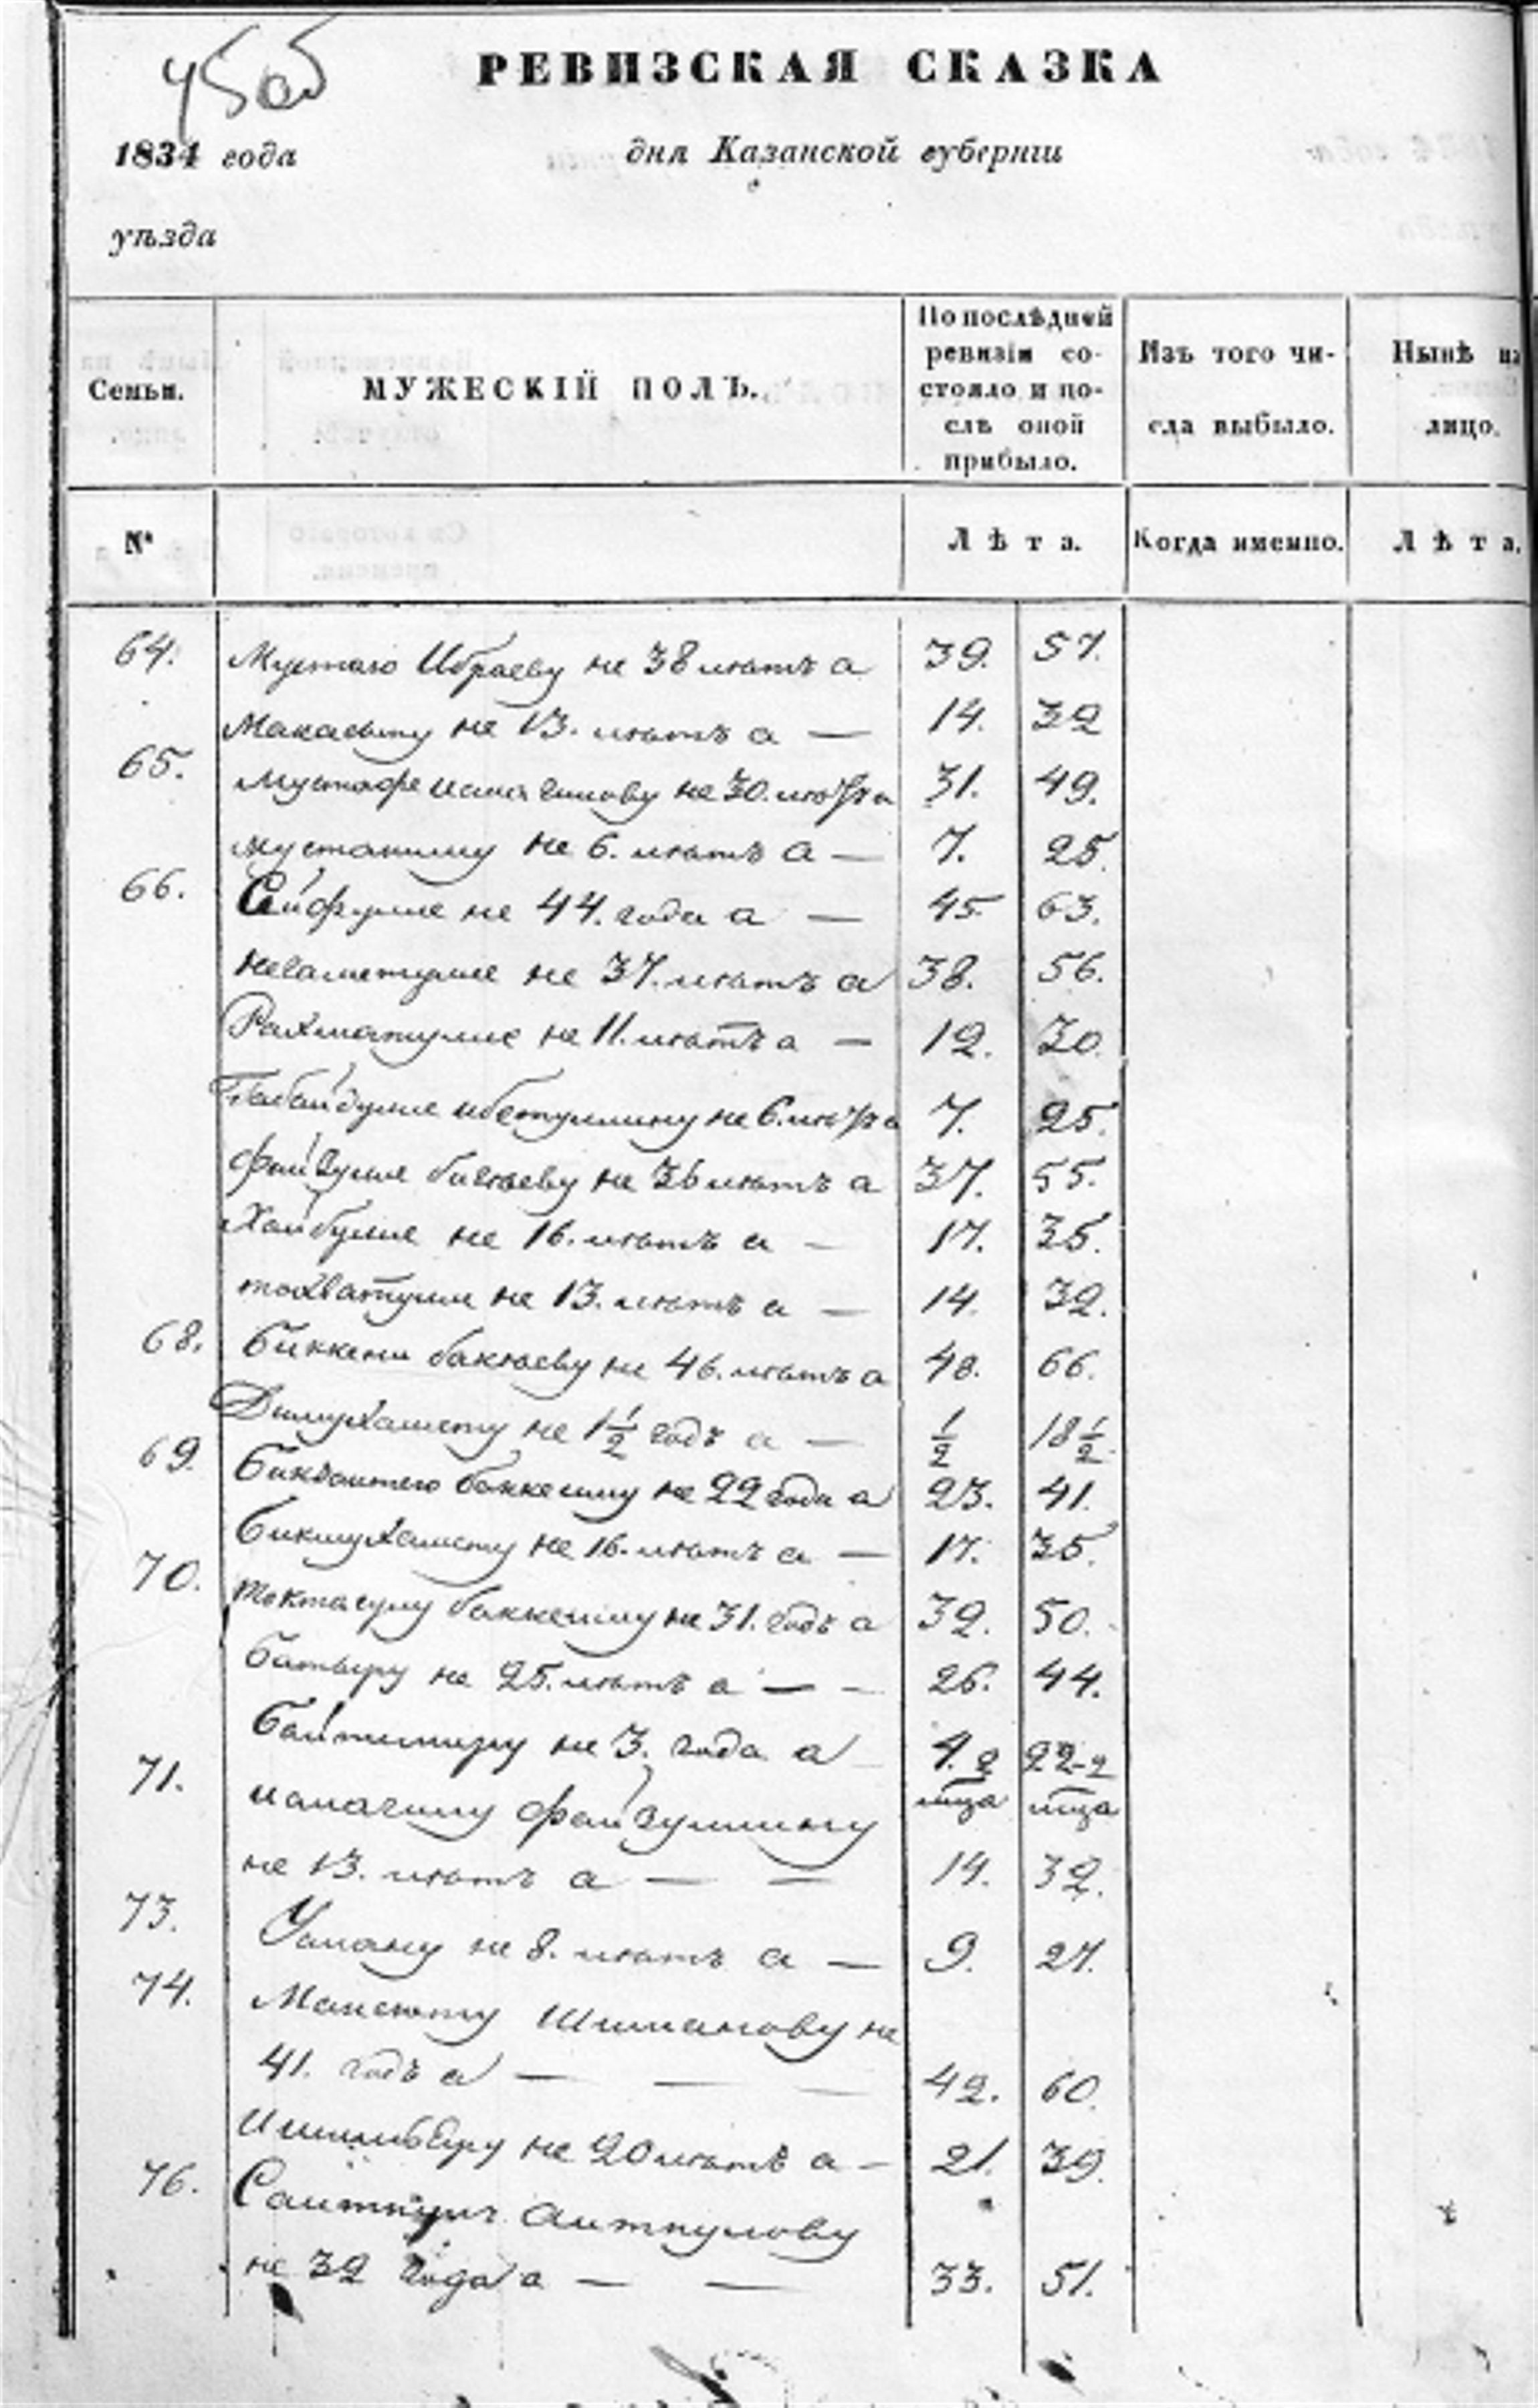 45об
РЕВИЗСКАЯ СКАЗКА
1834 года дня Казанской губерніи
уѣзда
Семьи.
МУЖЕСКІЙ ПОЛЪ.
По послѣдней ревизіи со-
стояло и по-
слѣ оной
прибыло.
Изъ того чи-
сла выбыло.
Нынѣ на
лицо.
№
Лѣта.
Когда именно.
Лѣта.
64. Мустаю Ибраеву не 38 лѣтъ а 39. 57.
Макасыту не 13. лѣтъ а — 14. 32
65. Мустафе не 30. лѣтъ а 31. 49.
не 6. лѣтъ а — 7. 25.
66. Сейфулле не 44. года а — 45 63.
Неаметулле не 37. лѣтъ а 38. 56.
Рахматулле не 11. лѣтъ а — 12. 30.
Габайдулле не 6. лѣтъ а 7. 25.
Файзулле не 36 лѣтъ а 37. 55.
Хайбулле не 16. лѣтъ а — 17. 35.
тохватулле не 13. лѣтъ а — 14. 32.
68. Биккени бактаеву не 46. лѣтъ а 48. 66.
Динмухамету не 1½ годъ а — ½ 18½.
69. не 22 года а 23. 41.
Бикмухамету не 16. лѣтъ а — 17. 35.
70. не 31. годъ а 32. 50.
Батыру не 25. лѣтъ а — — 26. 44.
Байтимиру не 3. года а 4. 2 22-2
71. Исмагилу Файзуллину мца мца
не 13. лѣтъ а — — 14. 32.
73. Усману не 8. лѣтъ а — 9. 27.
74. Максюту Ишманову не
41. годъ а — — — 42. 60.
не 20 лѣтъ а — 21. 39.
76. Саиткулу Аиткулову
не 32 года а — — 33. 51.